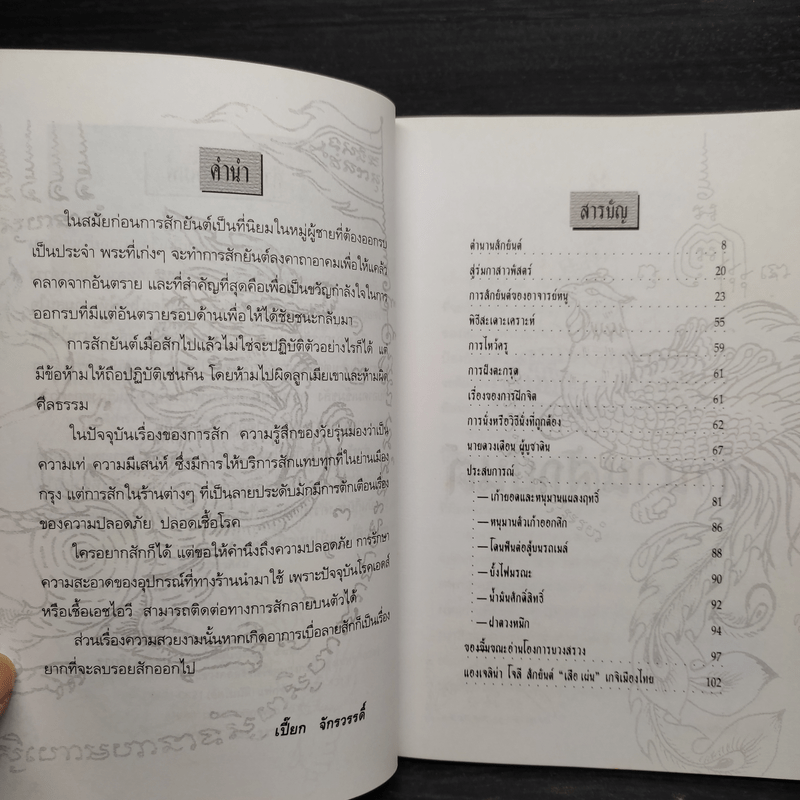 คำนำ
ในสมัยก่อนการสักยันต์เป็นที่นิยมในหมู่ผู้ชายที่ต้องออกรบ
เป็นประจำ พระที่เก่งๆ จะทำการสักยันต์ลงคาถาอาคมเพื่อให้แคล้ว
คลาดจากอันตราย และที่สำคัญที่สุดคือเพื่อเป็นขวัญกำลังใจในการ
ออกรบที่มีแต่อันตรายรอบด้านเพื่อให้ได้ชัยชนะกลับมา
การสักยันต์เมื่อสักไปแล้วไม่ใช่จะปฏิบัติตัวอย่างไรก็ได้ แต่
มีข้อห้ามให้ถือปฏิบัติเช่นกัน โดยห้ามไปผิดลูกเมียเขาและห้ามผิด
ศีลธรรม
ในปัจจุบันเรื่องของการสัก ความรู้สึกของวัยรุ่นมองว่าเป็น
ความเท่ ความมีเสน่ห์ ซึ่งมีการให้บริการสักแทบทุกที่ในย่านเมือง
กรุง แต่การสักในร้านต่างๆ ที่เป็นลายประดับมักมีการตักเตือนเรื่อง
ของความปลอดภัย ปลอดเชื้อโรค
ใครอยากสักก็ได้ แต่ขอให้คำนึงถึงความปลอดภัย การรักษา
ความสะอาดของอุปกรณ์ที่ทางร้านนำมาใช้ เพราะปัจจุบันโรคเอดส์
หรือเชื้อเอชไอวี สามารถติดต่อทางการสักลายบนตัวได้
ส่วนเรื่องความสวยงามนั้นหากเกิดอาการเบื่อลายสักก็เป็นเรื่อง
ยากที่จะลบรอยสักออกไป
เปี๊ยก จักรวรรดิ์
สารบัญ
ตำนานสักยันต์ 8
สู่ร่มกาสาวพัสตร์ 20
การสักยันต์ของอาจารย์หนู 23
พิธีสะเดาะเคราะห์ 55
การไหว้ครู 59
การฝังตะกรุด 61
เรื่องของการฝึกจิต 61
การนั่งหรือวิธีนั่งที่ถูกต้อง 62
นายดวงเดือน ผู้บูชาดิน 67
ประสบการณ์
—เก้ายอดและหนุมานแผลงฤทธิ์ 81
—หนุมานตัวเก้าออกศึก 86
—โดนฟันต่อสู้บนรถเมล์ 88
—บั้งไฟมรณะ 90
—น้ำมันศักดิ์สิทธิ์ 92
—ฝ่าดวงหมึก 94
ของขึ้นขณะอ่านโองการบวงสรวง 97
แองเจลิน่า โจลี สักยันต์ "เสือ เผ่น" เกจิเมืองไทย 102